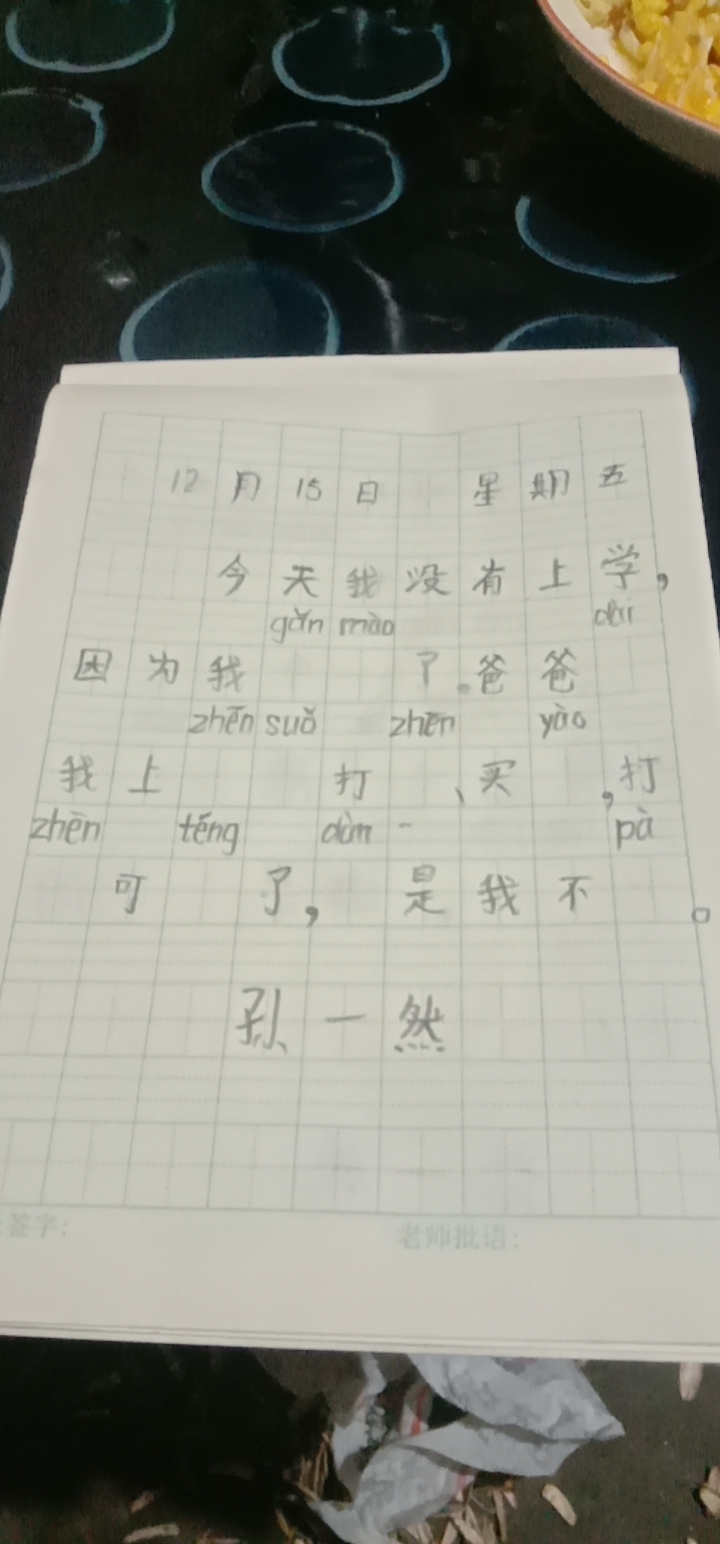 12月15日 星期五
今天我没有上学,
gǎn mào dài
因为我 了。爸爸
zhēn suǒ zhēn yào
我上 打 、买 ,打
zhēn téng dàn pà
可 了, 是我不 。
孙一然
签字:
老师批语: